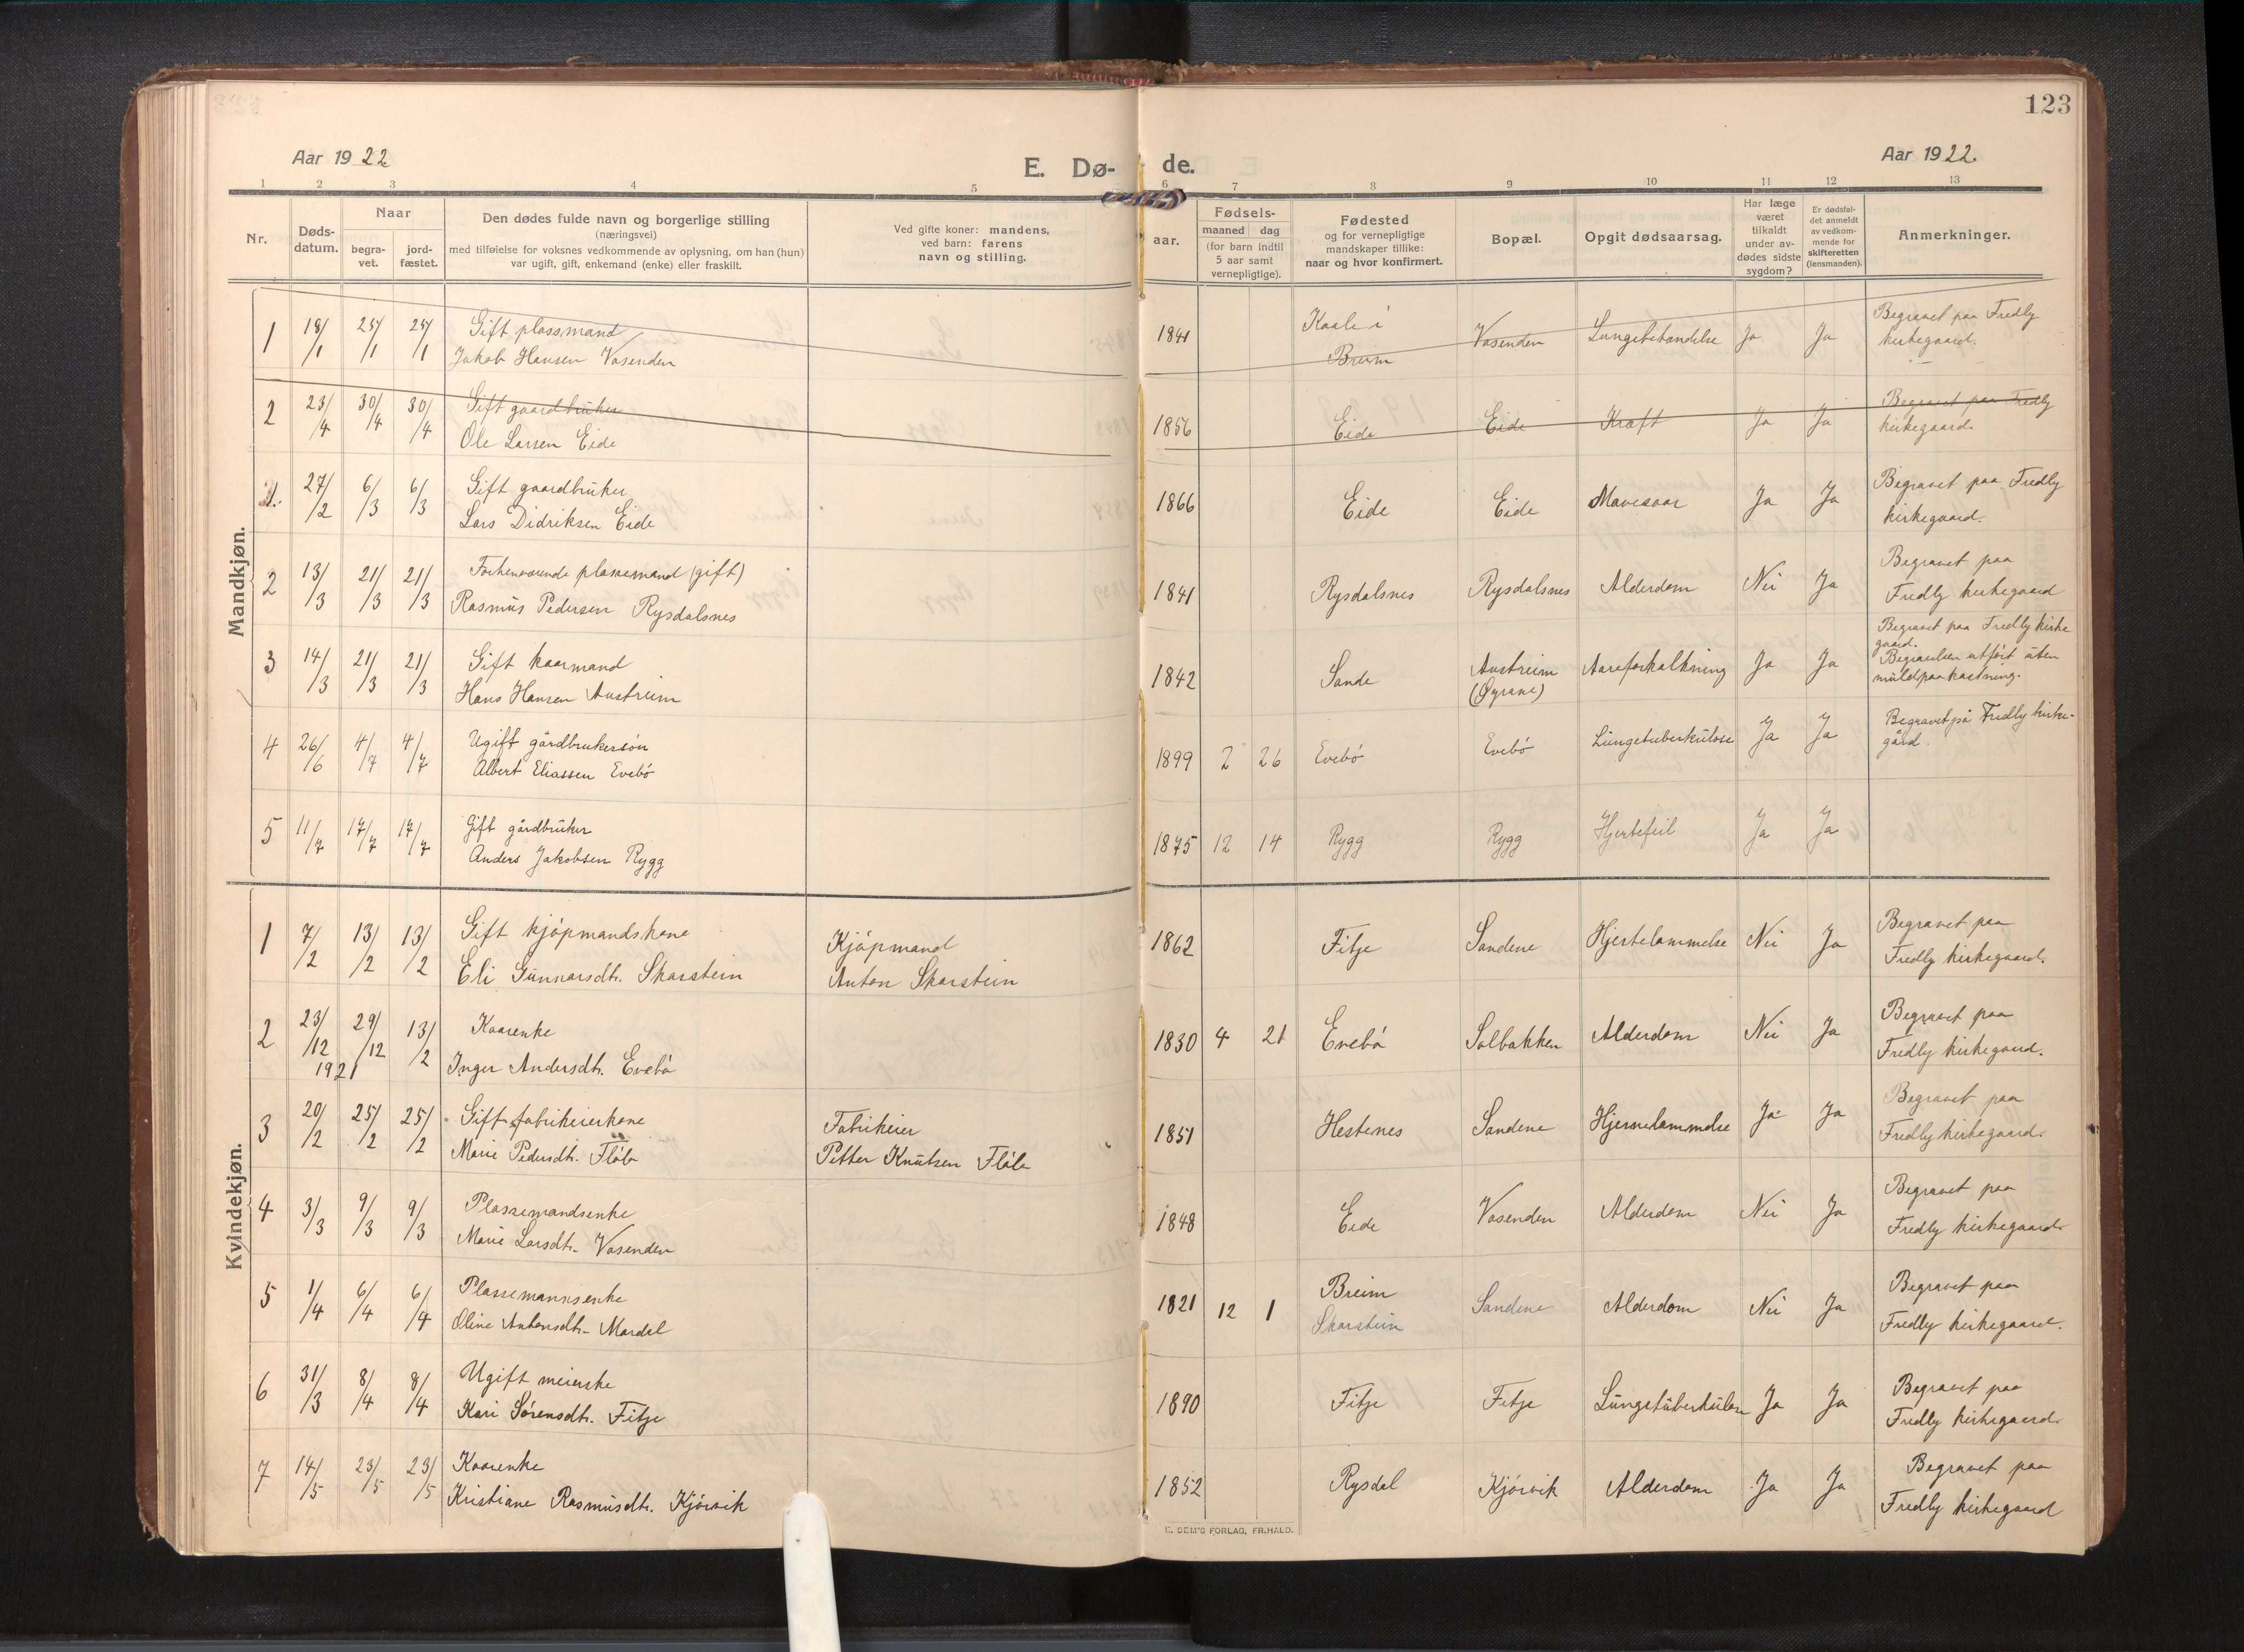 123
Aar 1922
E. Dø-
de.
Aar 1922.
1 2 3 4 5 6 7 8 9 10 11 12 13
Nr.
Døds-
datum.
Naar
begra-
vet.
jord-
fæstet.
Den dødes fulde navn og borgerlige stilling
(næringsvei)
med tilføielse for voksnes vedkommende av oplysning, om han (hun)
var ugift, gift, enkemand (enke) eller fraskilt.
Ved gifte koner: mandens,
ved barn: farens
navn og stilling.
Fødsels-
aar.
maaned dag
(for barn indtil
5 aar samt
vernepligtige).
Fødested
og for vernepligtige
mandskaper tillike:
naar og hvor konfirmert.
Bopæl.
Opgit dødsaarsag.
Har læge
været
tilkaldt
under av-
dødes sidste
sygdom?
Er dødsfal-
det anmeldt
av vedkom-
mende for
skifteretten
(lensmanden).
Anmerkninger.
Mandkjøn.
1 18/1 25/1 25/1 Gift plassmand
Jakob Hansen Vasenden
1841 Kaale i
Breim
Vasenden Lungebetændelse Ja Ja Begravet paa Fredly
kirkegaard.
2 23/4 30/4 30/4 Gift gaardbruker
Ole Larsen Eide
1856 Eide Eide Kræft Ja Ja Begravet paa Fredly
kirkegaard.
1. 27/2 6/3 6/3 Gift gaardbruker
Lars Didriksen Eide
1866 Eide Eide Mavesaar Ja Ja Begravet paa Fredly
kirkegaard.
2 13/3 21/3 21/3 Forhenværende plassemand (gift)
Rasmus Pedersen Rysdalsnes
1841 Rysdalsnes Rysdalsnes Alderdom Nei Ja Begravet paa
Fredly kirkegaard
3 14/3 21/3 21/3 Gift kaarmand
Hans Hansen Austreim
1842 Sande Austreim
(Øyrane)
Aareforkalkning Ja Ja Begravet paa Fredly kirke
gaard.
Begravelsen utført uten
muldpaakastning.
4 26/6 4/7 4/7 Ugift gårdbrukersøn
Albert Eliassen Evebø
1899 2 26 Evebø Evebø Lungetuberkulose Ja Ja Begravet på Fredly kirke-
gård.
5 11/7 17/7 17/7 Gift gårdbruker
Anders Jakobsen Rygg
1875 12 14 Rygg Rygg Hjertefeil Ja Ja
Kvindekjøn.
1 7/2 13/2 13/2 Gift kjøpmandskone
Eli Gunnarsdtr. Skarstein
Kjøpmand
Anton Skarstein
1862 Fitje Sandene Hjertelammelse Nei Ja Begravet paa
Fredly kirkegaard.
2 23/12 29/12 13/2 Kaarenke
1921 Inger Andersdtr. Evebø
1830 4 21 Evebø Solbakken Alderdom Nei Ja Begravet paa
Fredly kirkegaard.
3 20/2 25/2 25/2 Gift fabrikeierkone
Marie Pedersdtr. Fløle
Fabrikeier
Petter Knutsen Fløle
1851 Hestenes Sandene Hjernelammelse Ja Ja Begravet paa
Fredly kirkegaard.
4 3/3 9/3 9/3 Plassemandsenke
Marie Larsdtr. Vasenden
1848 Eide Vasenden Alderdom Nei Ja Begravet paa
Fredly kirkegaard.
5 1/4 6/4 6/4 Plassemannsenke
Oline Antonsdtr. Mardal
1821 12 1 Breim
Skarstein
Sandene Alderdom Nei Ja Begravet paa
Fredly kirkegaard.
6 31/3 8/4 8/4 Ugift meierske
Kari Sørensdtr. Fitje
1890 Fitje Fitje Lungetuberkulose Ja Ja Begravet paa
Fredly kirkegaard.
7 14/5 23/5 23/5 Kaarenke
Kristiane Rasmusdtr. Kjørvik
1852 Rysdal Kjørvik Alderdom Ja Ja Begravet paa
Fredly kirkegaard
E. SEM'S FORLAG, FR.HALD.